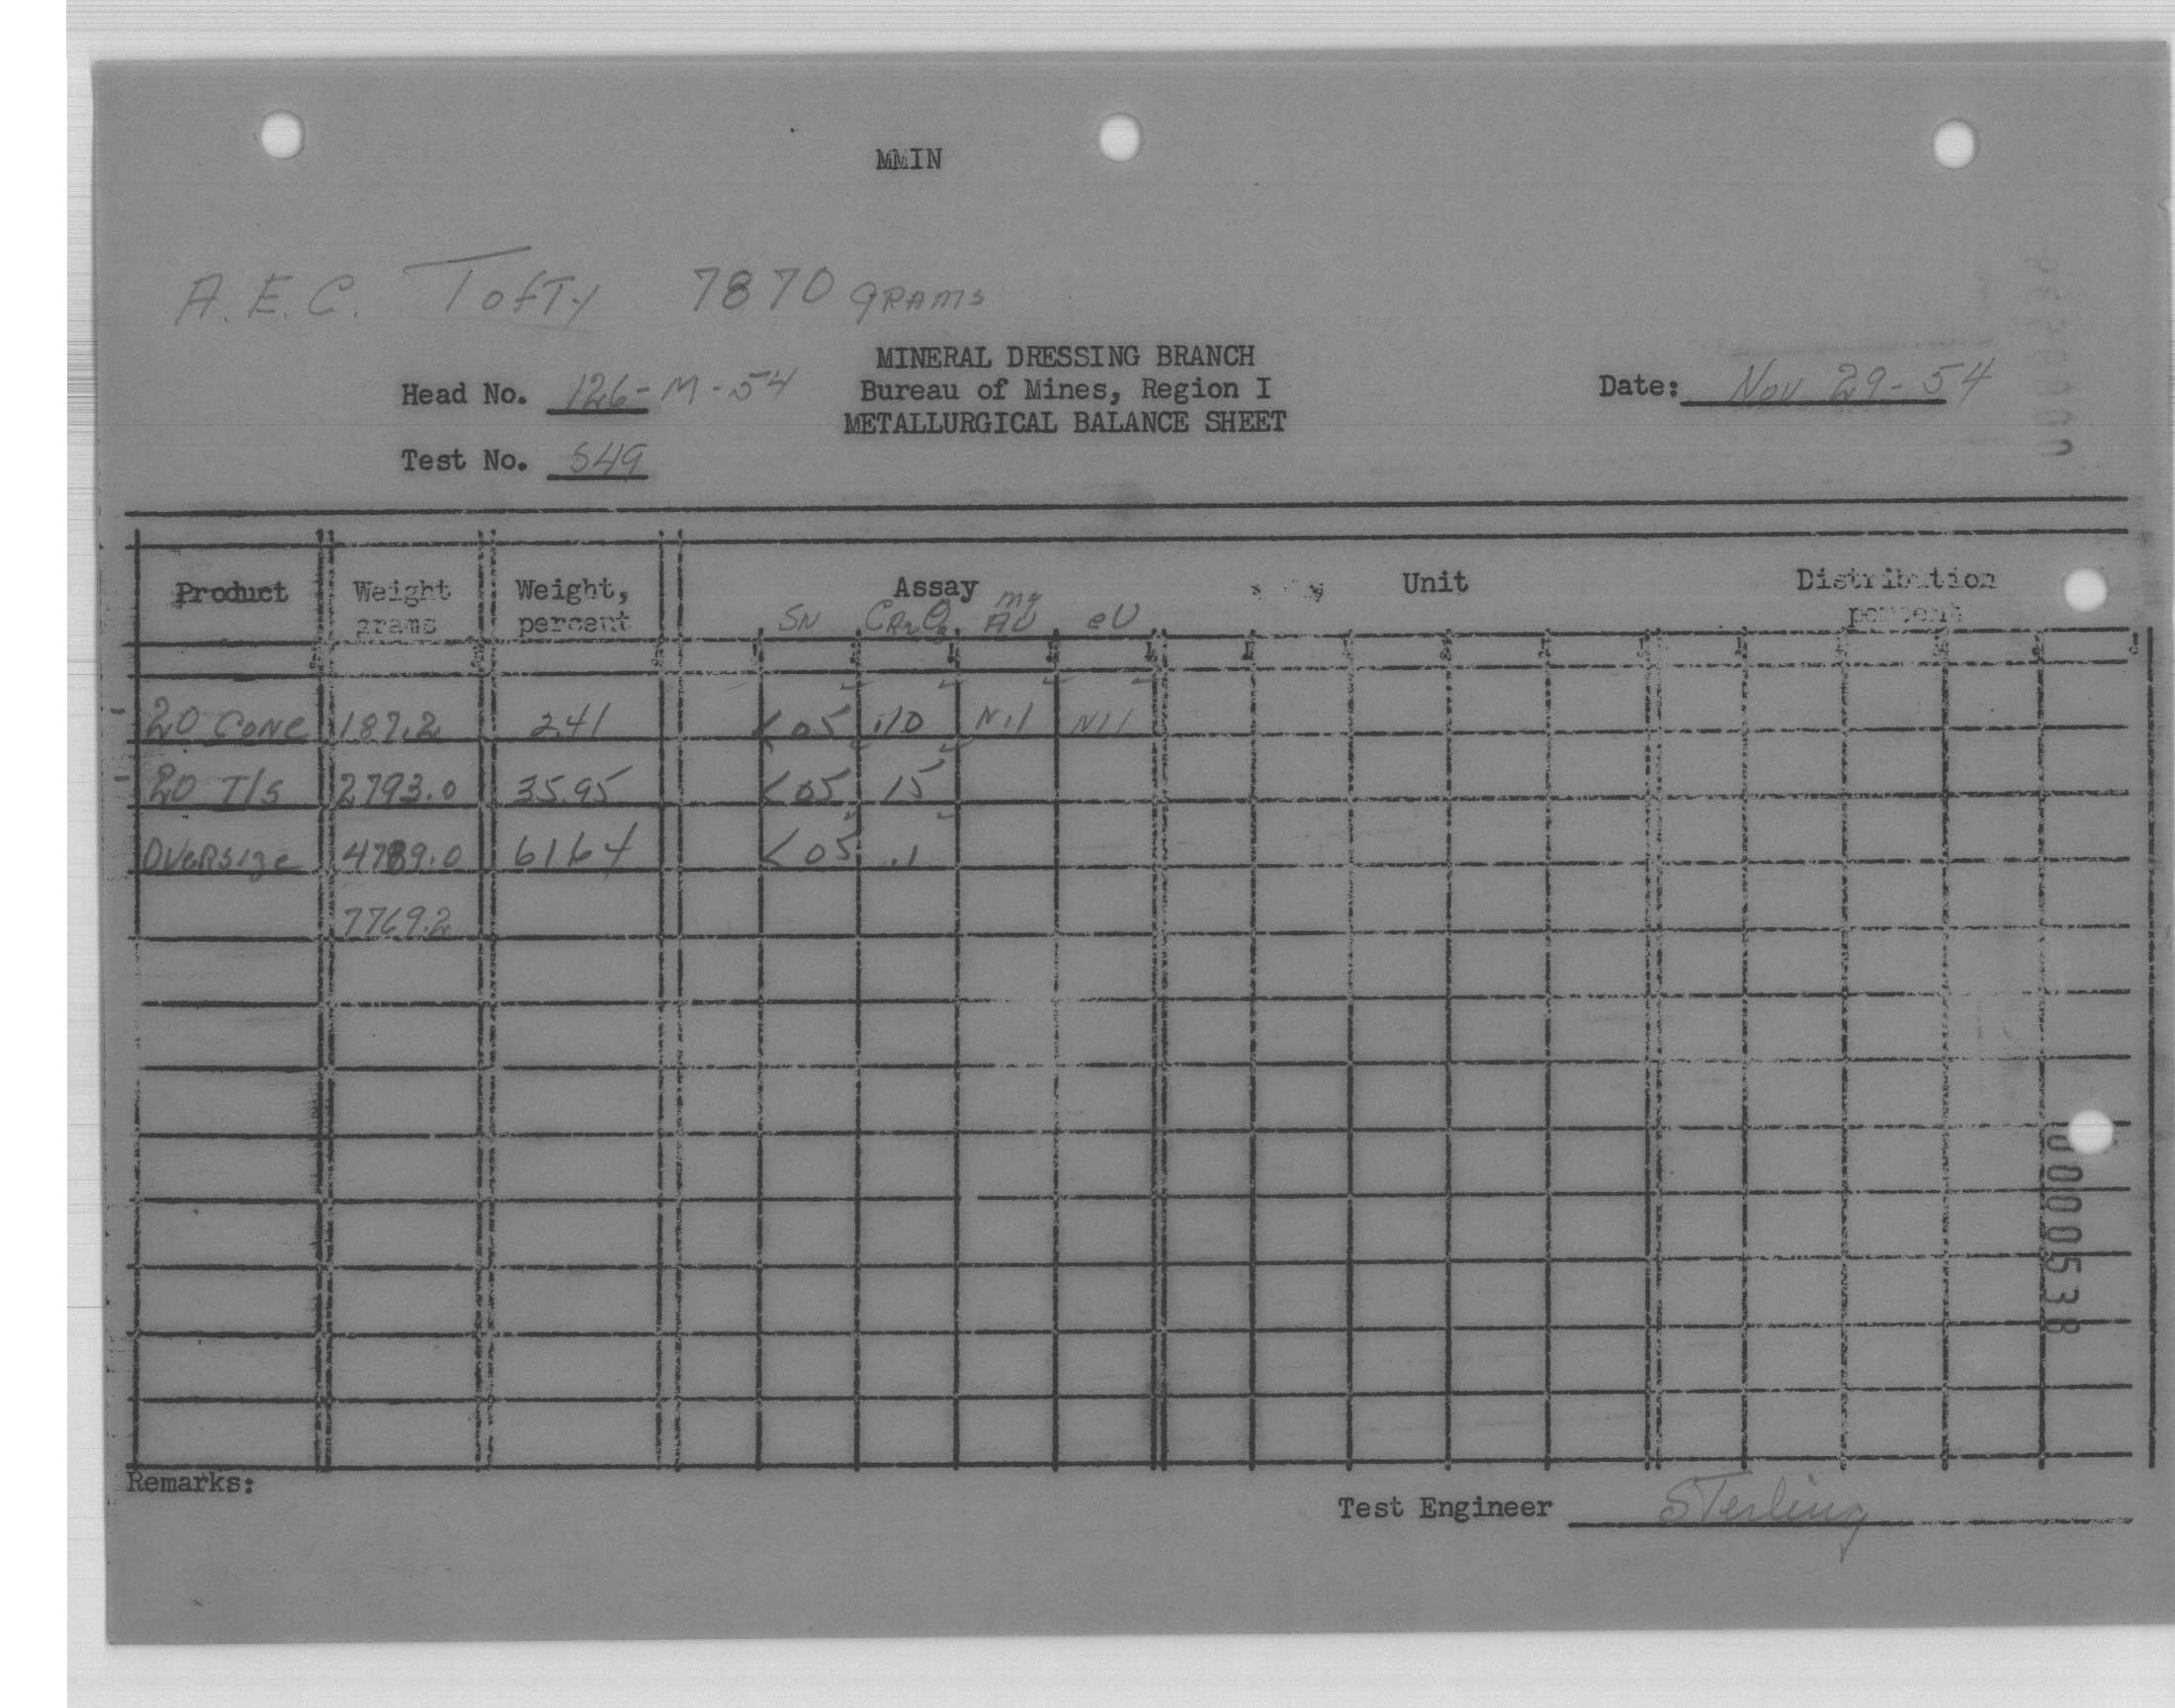 MMIN
A.E.C. Tofty 7870 grams
MINERAL DRESSING BRANCH
Head No. 126-M-54 Bureau of Mines, Region I Date: Nov 29-54
METALLURGICAL BALANCE SHEET
Test No. 549
Product Weight grams Weight, percent Assay Unit Distribution percent
SN CR2O3 mg AU eU
-20 CONC 187.2 2.41 <.05 .10 Nil Nil
-20 T/s 2793.0 35.95 <05 15
OVERSIZE 4789.0 6164 <05 .1
7769.2
0000538
Remarks:
Test Engineer Sterling